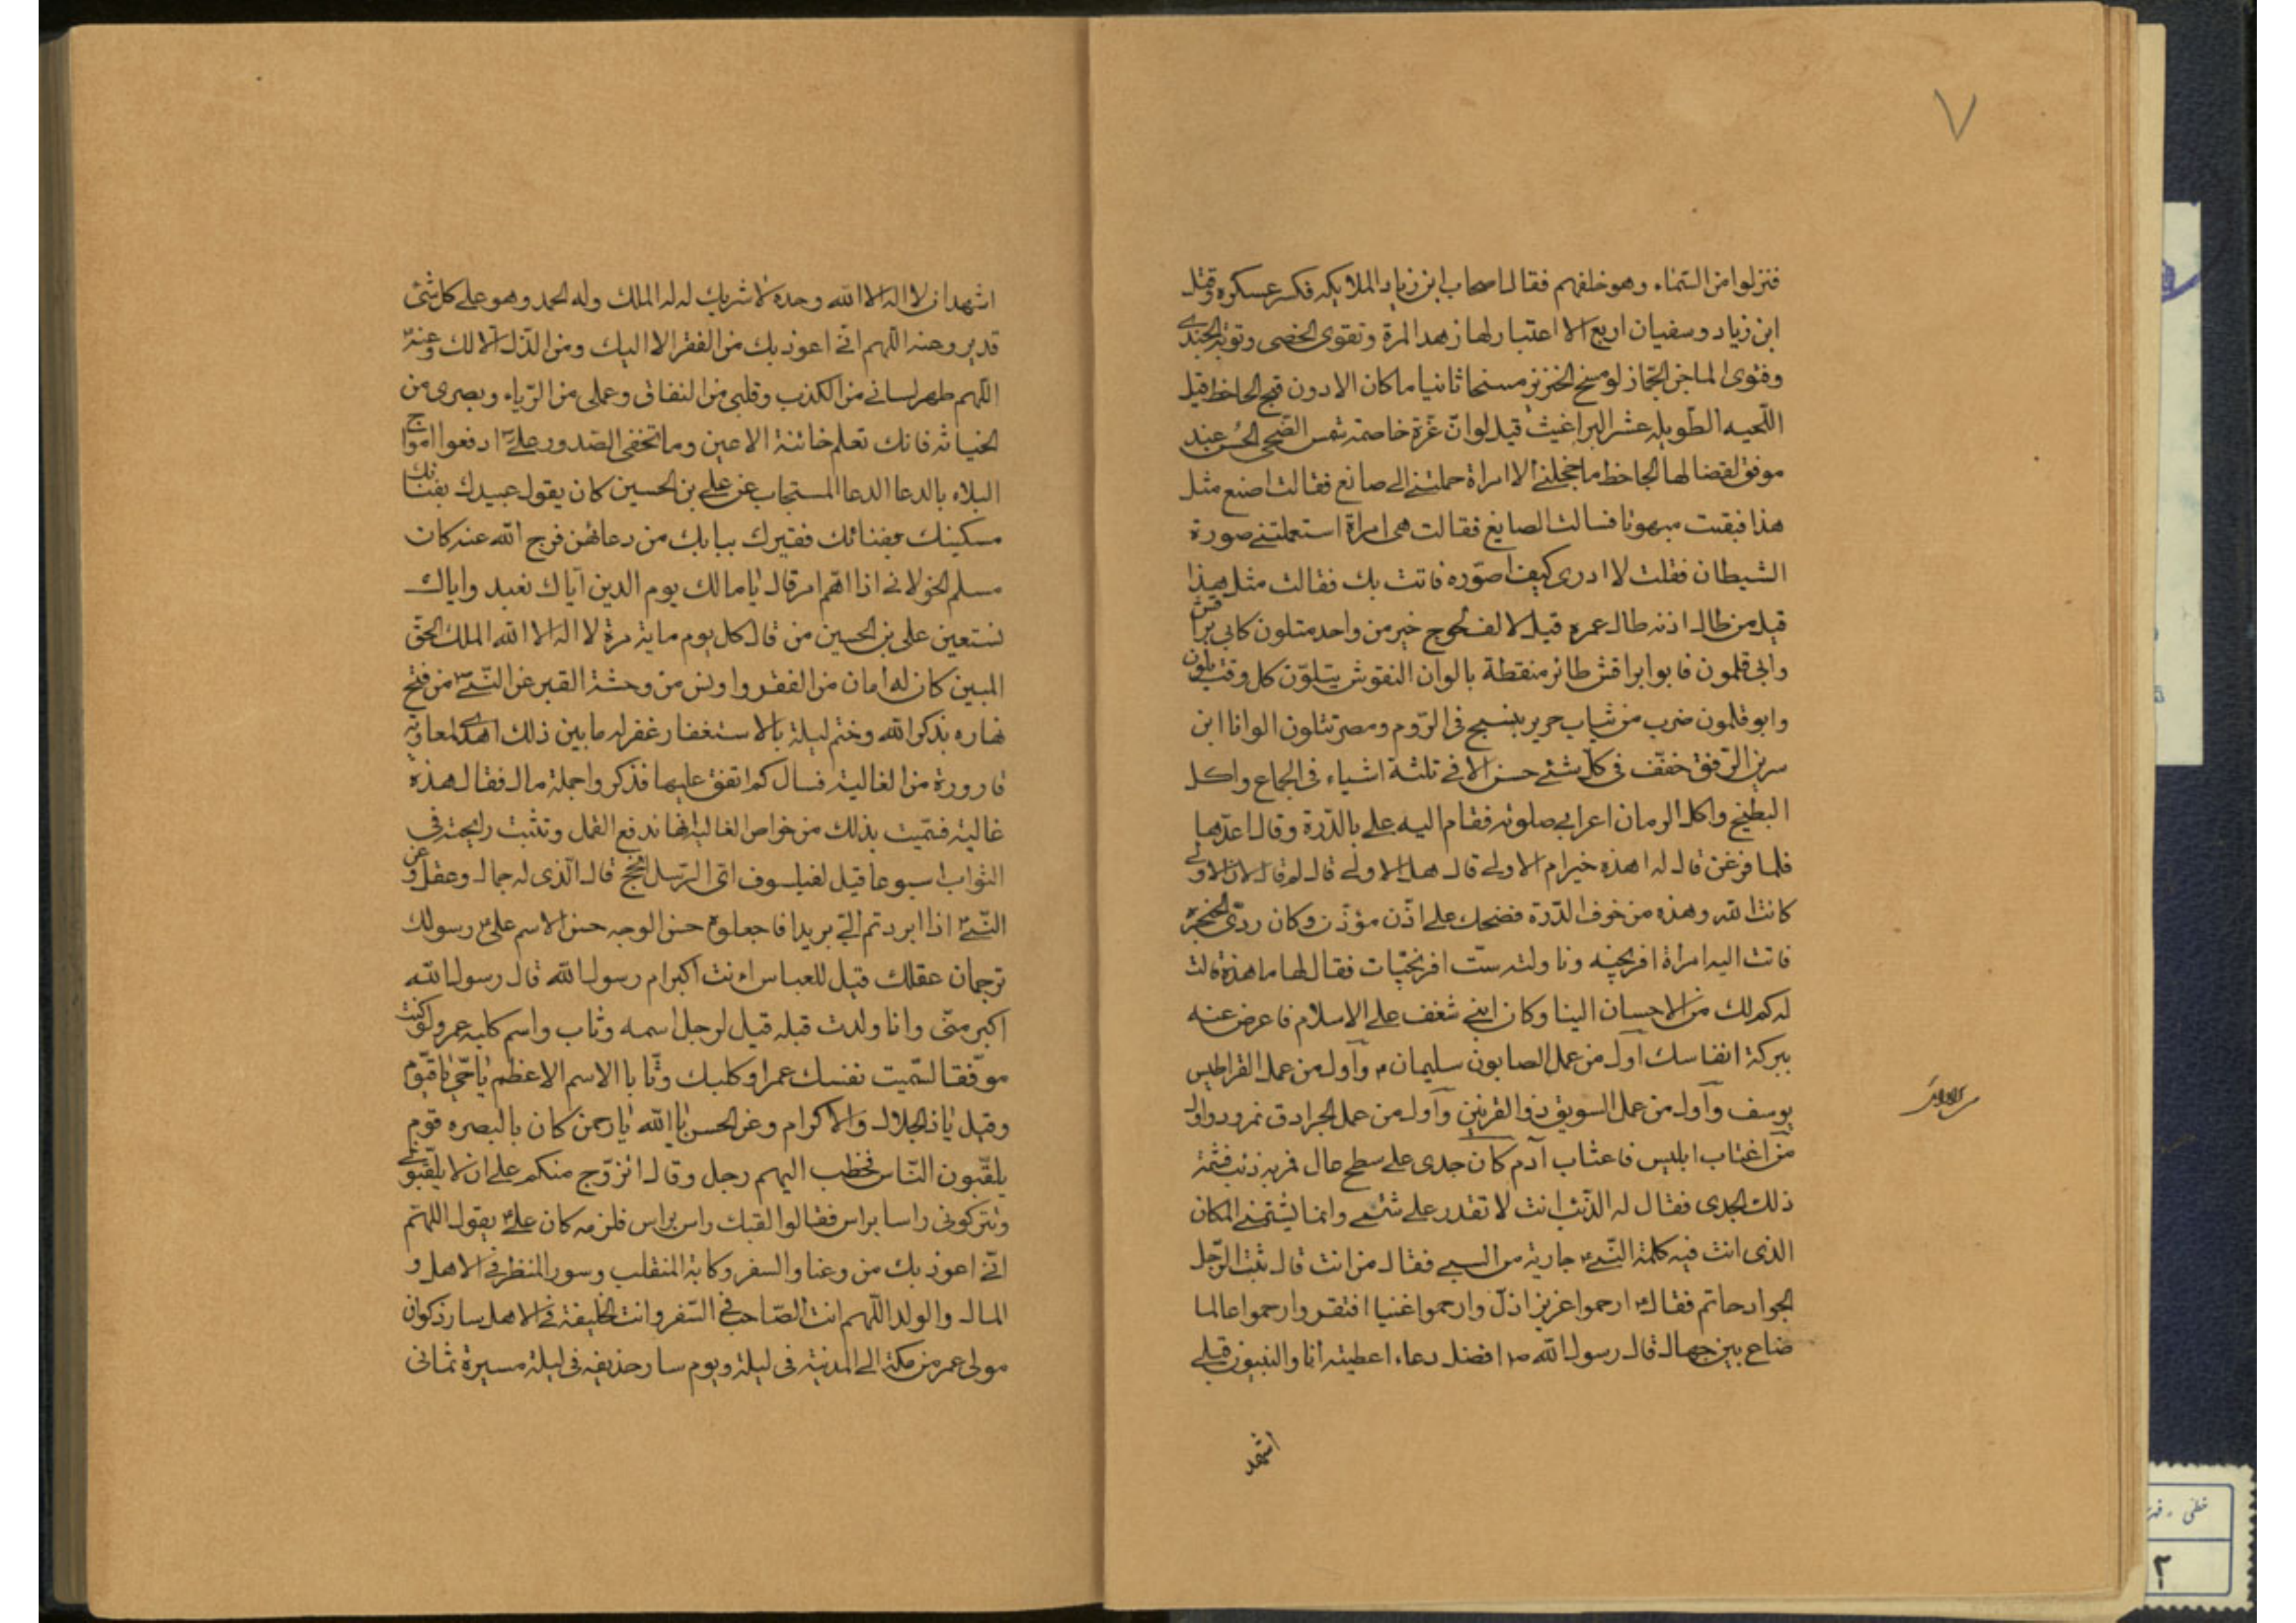 ٧
فنزلوا من السماء وهو خلفهم فقال اصحاب ابن زياد الملايكه فكسر عسكره وقتل
ابن زياد وسفيان اربع لا اعتبار لها زهد المرة وتقوى الخصى وتوبة الجندى
وفتوى الماجن الجماز لو مسخ الخنزير مسخا ثانيا ما كان الا دون قبح الجاحظ قيل
اللحيه الطويله عش البراغيث قيل لو ان عزة خاصمت شمس الضحى الحسن عند
موفق لقضا لها الجاحظ ما اخجلنى الا امراة حملتنى الى صائغ فقالت اصنع مثل
هذا فبقيت مبهوتا فسالت الصايغ فقالت هى امراة استعملتنى صورة
الشيطان فقلت لا ادرى كيف اصوره فاتت بك فقالت مثل هذا
قيل من طال اذنه طال عمره قيل لالف لحوح خير من واحد متلون كابى براقش
وابى قلمون فابو براقش طائر منقطة بالوان النقوش يتلون كل وقت بلون
وابو قلمون ضرب من ثياب حرير ينسج فى الروم ومصر تتلون الوانا ابن
سرين الرفق خفف فى كل شئ حسن الا فى ثلثة اشياء فى الجماع واكل
البطيخ واكل الرمان اعرابى صلوته فقام اليه على بالدرة وقال اعدها
فلما فرغ قال له اهذه خير ام الاولى قال هل الاولى قال لم قال لان الاولى
كانت لله وهذه من خوف الدرة فضحك على اذن مؤذن وكان ردى الحنجرة
فاتت اليه امراة افرنجيه وناولته ست افرنجيات فقال لها ما هذه قالت
له كم لك من الاحسان الينا وكان ابنى شغف على الاسلام فاعرض عنه
ببركة انفاسك اول من عمل الصابون سليمان ع واول من عمل القراطيس
يوسف واول من عمل السويق ذو القرنين واول من عمل الجرادق نمرود واول
من اغتاب ابليس فاغتاب آدم كان جدى على سطح عال فمر به ذئب فشتمه
ذلك الجدى فقال له الذئب انت لا تقدر على شئ وانما يشتمنى المكان
الذى انت فيه كلمة النبى ص جارية من السبى فقال من انت قال بنت الرجل
الجواد حاتم فقال ص ارحموا عزيزا ذل وارحموا غنيا افتقر وارحموا عالما
ضاع بين جهال قال رسول الله ص افضل دعاء اعطيته انا والنبيون قبلى
اشهد
اشهد ان لا اله الا الله وحده لا شريك له له الملك وله الحمد وهو على كل شئ
قدير وعنه اللهم انى اعوذ بك من الفقر الا اليك ومن الذل الا لك وعنه
اللهم طهر لسانى من الكذب وقلبى من النفاق وعملى من الرياء وبصرى من
الخيانه فانك تعلم خائنة الاعين وما تخفى الصدور على ع ادفعوا امواج
البلاء بالدعا الدعا المستجاب عن على بن الحسين كان يقول عبيدك بفنائك
مسكينك بفنائك فقيرك ببابك من دعا بهن فرج الله عنه كان
مسلم الخولانى اذا اهم امر قال يا مالك يوم الدين اياك نعبد واياك
نستعين على بن الحسين من قال كل يوم ماية مرة لا اله الا الله الملك الحق
المبين كان له امان من الفقر واونس من وحشة القبر عن النبى ص من فتح
نهاره بذكر الله وختم ليلة بالاستغفار غفر له ما بين ذلك اهدى لمعاويه
قارورة من الغالية فسال كم اتفق عليها فذكروا جملة مال فقال هذه
غالية فسميت بذلك من خواص الغالية انها تدفع القمل وتثبت رايحته فى
الثواب اسبوعا قيل لفيلسوف اى الرسل انجح قال الذى له جمال وعقل وعن
النبى ص اذا ابردتم الى بريدا فاجعلوه حسن الوجه حسن الاسم على ع رسولك
ترجمان عقلك قيل للعباس انت اكبر ام رسول الله قال رسول الله
اكبر منى وانا ولدت قبله قيل لرجل اسمه وثاب واسم كلبه عمرو لو كنت
موفقا لسميت نفسك عمرا وكلبك وثابا الاسم الاعظم يا حى يا قيوم
وقيل يا ذا الجلال والاكرام وعن الحسن يا الله يا رحمن كان بالبصره قوم
يلقبون الناس فخطب اليهم رجل وقال اتزوج منكم على ان لا يلقبونى
وتتركونى راسا براس فقالوا لقبك راس براس فلزمه كان على ع يقول اللهم
انى اعوذ بك من وعثاء السفر وكابة المنقلب وسوء المنظر فى الاهل و
المال والولد اللهم انت الصاحب فى السفر وانت الخليفة فى الاهل سار ذكوان
مولى عمر من مكة الى المدنية فى ليلة ويوم سار حذيفه فى ليلة مسيرة ثمانى
خطى
٢